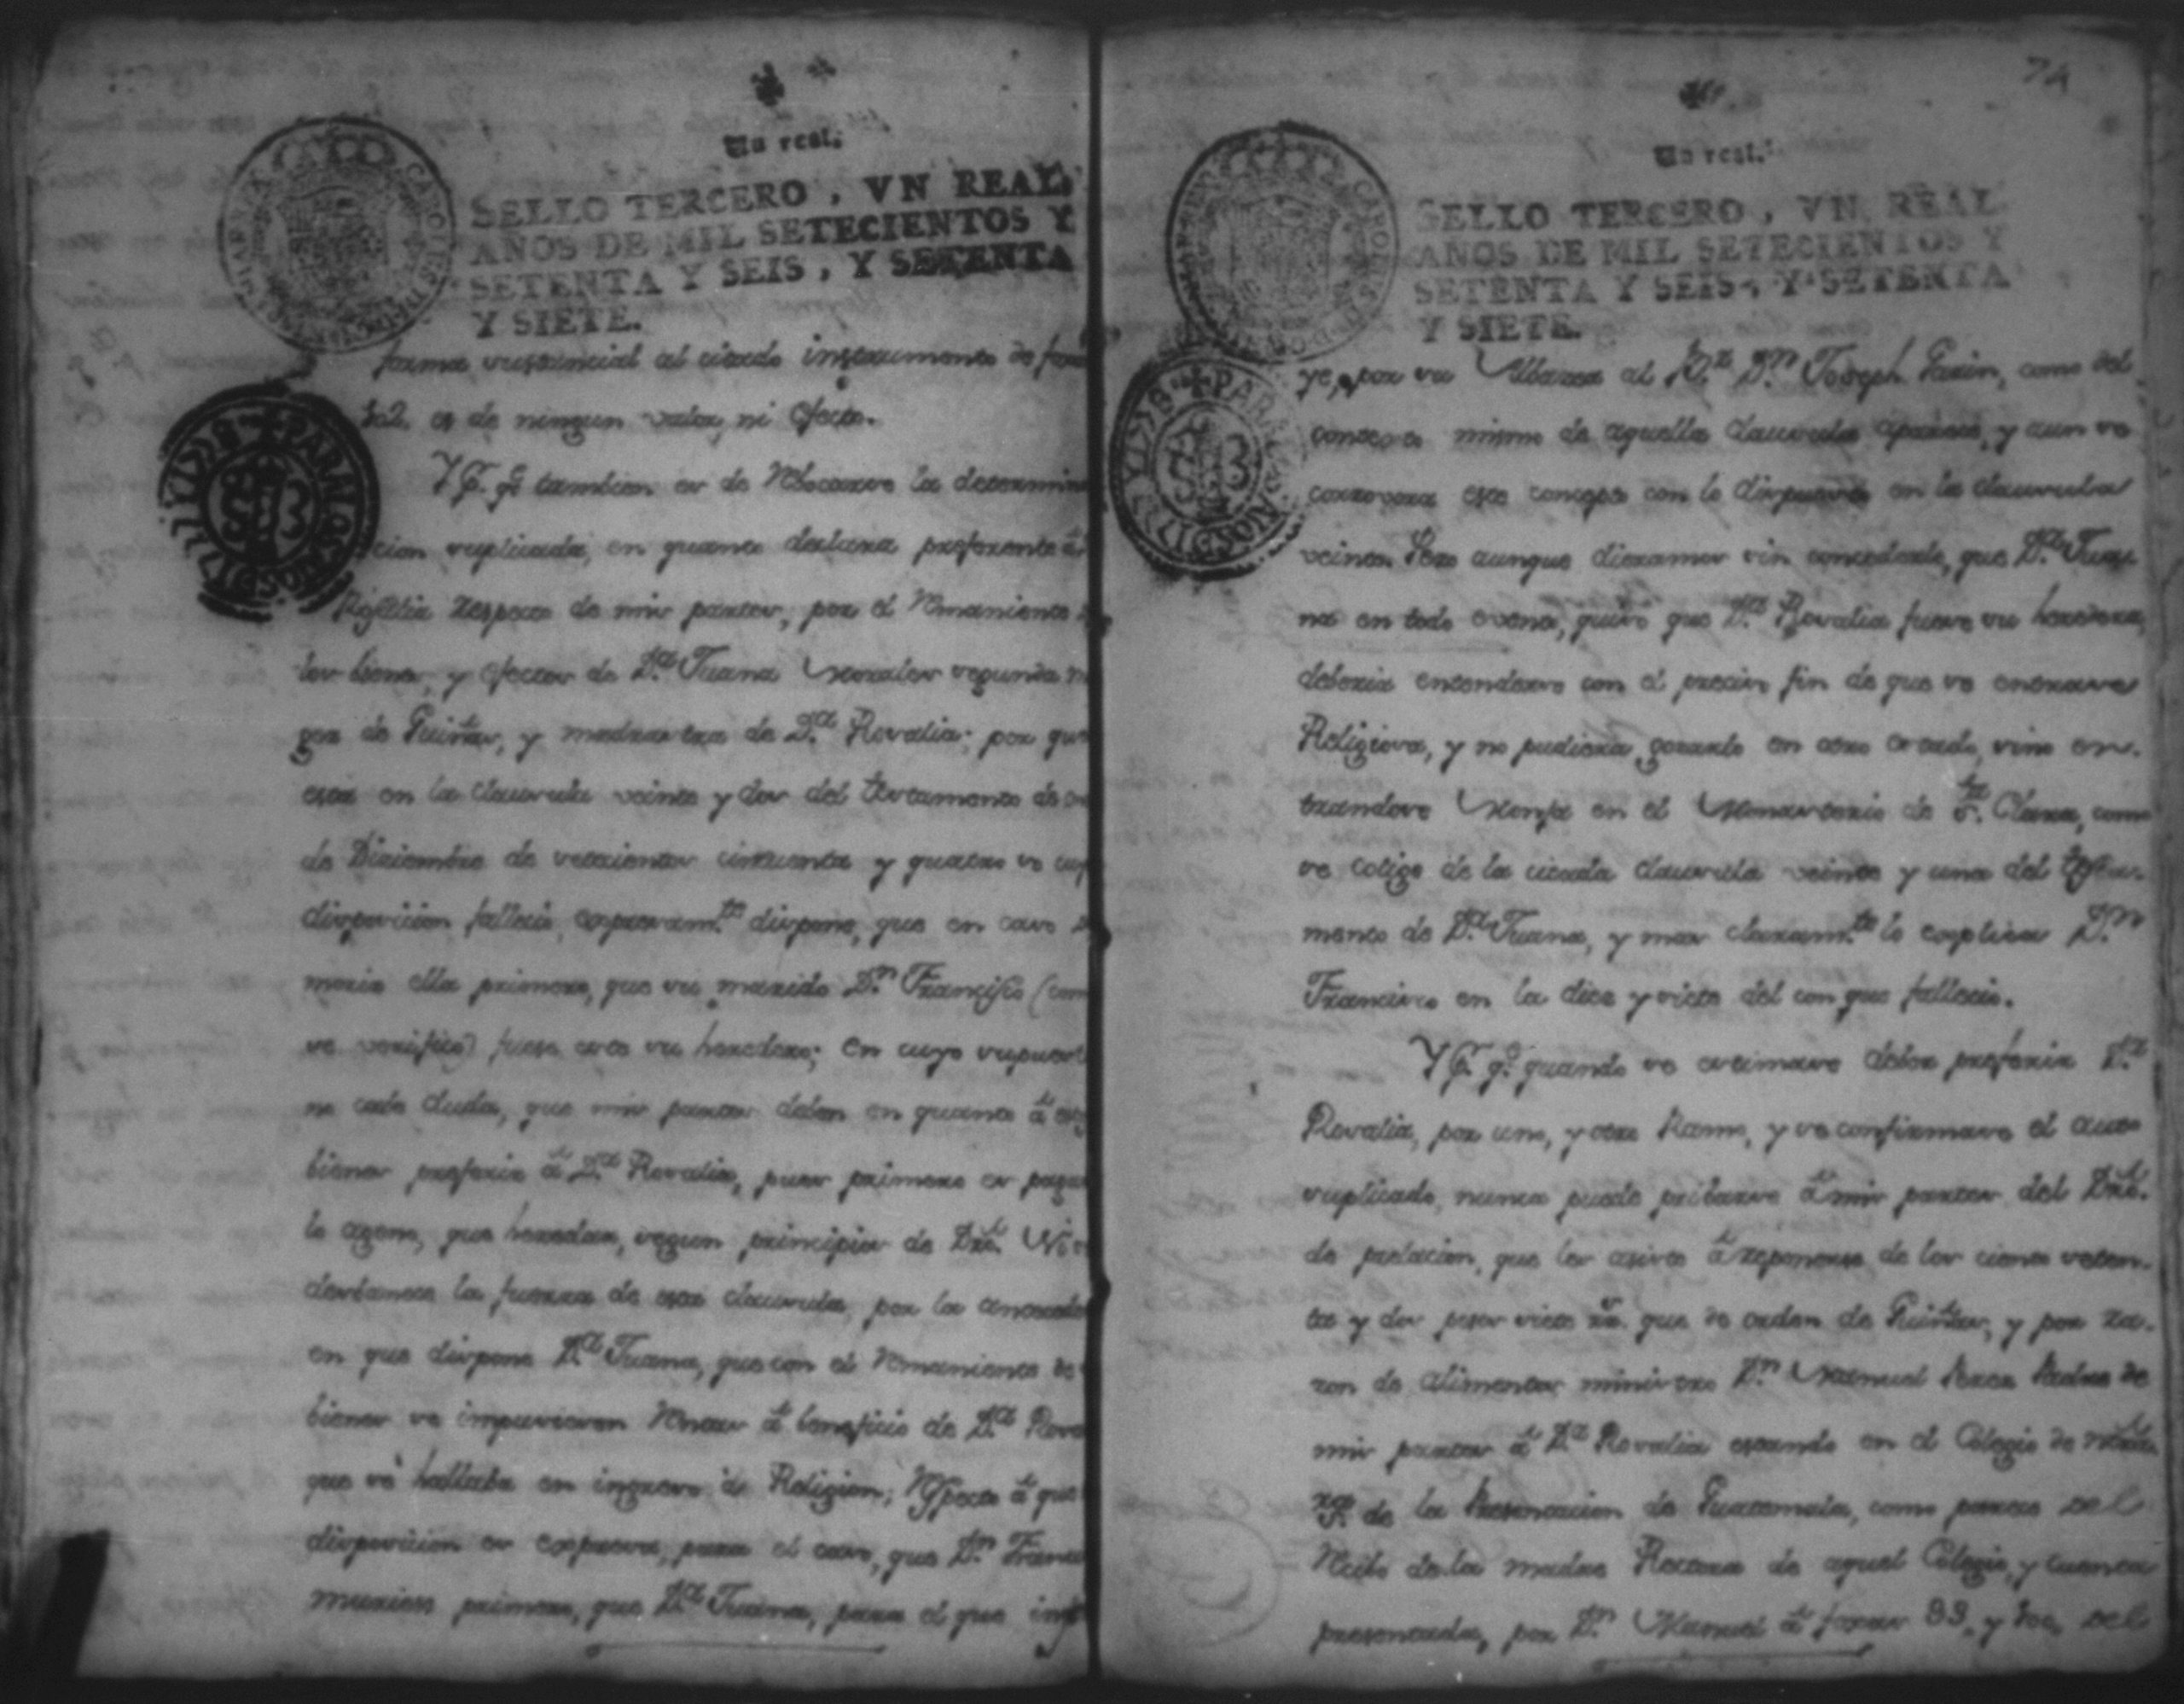 Un real.
SELLO TERCERO, VN REAL,
AÑOS DE MIL SETECIENTOS Y
SETENTA Y SEIS, Y SETENTA
Y SIETE.
forma sustancial al citado instrumento de
es de ningun valor, ni efecto.
Y P. q.e tambien es de Rebocarse la determina
cion suplicada, en quanto declara preferente â
Rosalia respecto de mis partes, por el Remaniente
los bienes, y efectos de D.a Juana Morales segunda
ger de Guiñas, y madrastra de D.a Rosalia; por que
esta en la clausula veinte y dos del testamento de
de Diziembre de setecientos cinquenta y quatro
disposicion fallecio, expresam.te dispone, que en caso
morir ella primero, que su marido D.n Francisco (com
se verifico) fuese este su heredero; en cuyo supuest
no cabe duda, que mis partes deben en quanto â
bienes preferir â D.a Rosalia, pues primero es paga
lo ageno, que heredar, segun principios de Dro. Ni
desbanece la fuerza de esta clausula, por la
en que dispone D.a Juana, que con el Remaniente de
bienes se impusiesen Rentas â beneficio de D.a Rosa
que se hallaba en ingreso de Religion; Respecto â que
disposicion es expresa, para el caso, que D.n Franci
muriese primero, que D.a Juana, para el que
74
Un real.
SELLO TERCERO, VN REAL
AÑOS DE MIL SETECIENTOS Y
SETENTA Y SEIS, Y SETENTA
Y SIETE.
ye, por su Albacea al D.n Joseph como del
contexto mismo de aquella clausula aparece, y aun se
corrovora este concepto con lo dispuesto en la clausula
veinte. Pero aunque dieramos sin concederlo, que D.a Jua
na en todo evento, quiso que D.a Rosalia fuese su heredera,
deberia entenderse con el preciso fin de que se entrase
Religiosa, y no pudiera gozarlo en otro estado, sino en.
trandose Monja en el Monasterio de S.ta Clara, como
se colige de la citada clausula veinte y una del testa.
mento de D.a Juana, y mas claram.te lo explica D.n
Francisco en la diez y siete del con que fallecio.
Y P. q.e quando se estimase deber preferir D.a
Rosalia, por uno, y otro Ramo, y se confirmase el auto
suplicado, nunca puede pribarse â mis partes del Dro.
de prelacion, que les asiste â reponerse de los ciento seten.
ta y dos pesos siete rs. que de orden de Guiñas, y por ra.
zon de alimentos ministro D.n Manuel Padre de
mis partes â D.a Rosalia estando en el Colegio de
de la Presentacion de Guatemala, como parece del
Recibo de la madre Rectora de aquel Colegio, y cuenta
presentada, por D.n Manuel â foxas 99. y del